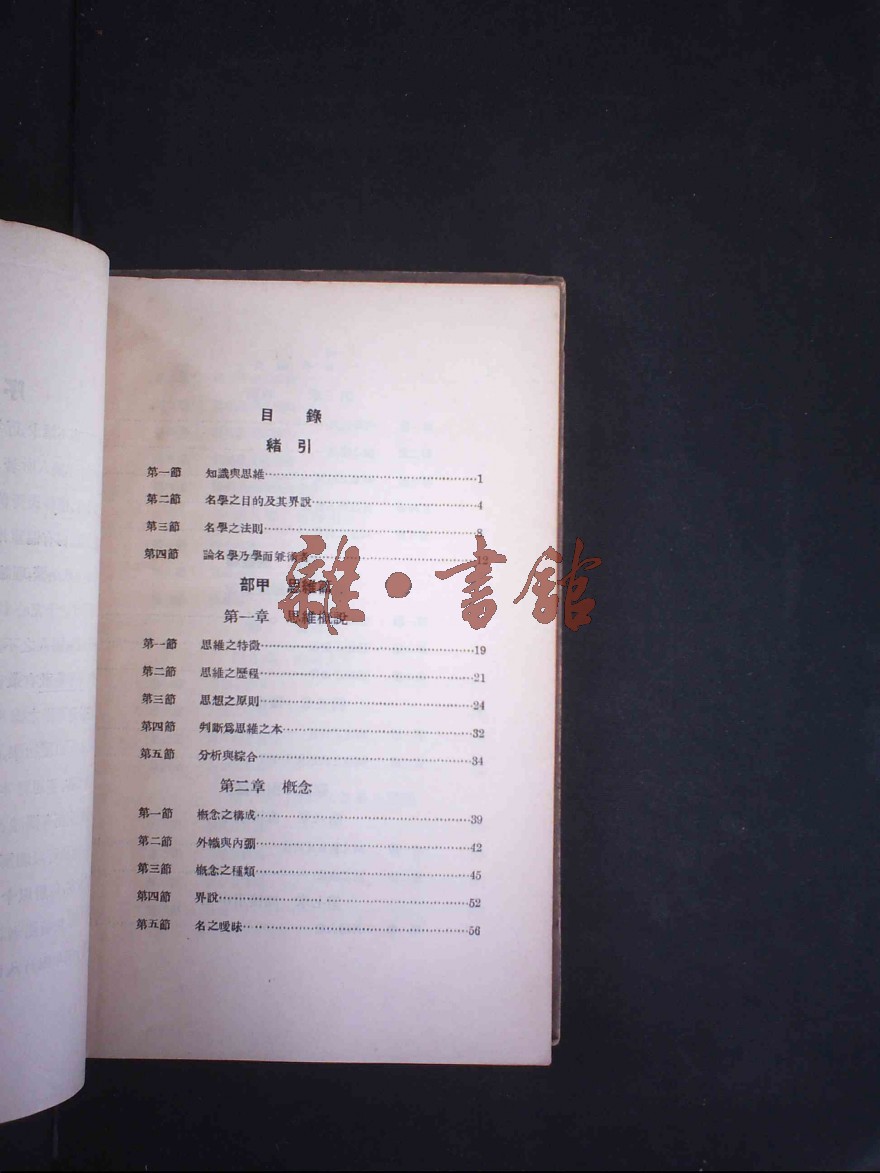 目錄
緒引
第一節 知識與思維 1
第二節 名學之目的及其界說 4
第三節 名學之法則 8
第四節 論名學乃學而兼術者 12
部甲 思維論
第一章 思維概說
第一節 思維之特徵 19
第二節 思維之歷程 21
第三節 思想之原則 24
第四節 判斷爲思維之本 32
第五節 分析與綜合 34
第二章 概念
第一節 概念之構成 39
第二節 外幟與內弸 42
第三節 概念之種類 45
第四節 界說 52
第五節 名之曖昧 56
序
雜·書館